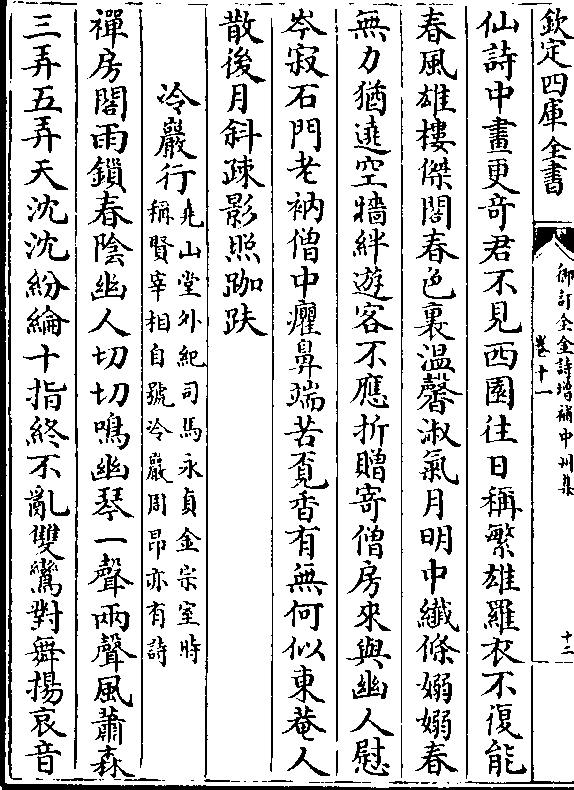 欽定四庫全書
御訂全金詩增補中州集
卷十一
十二
仙詩中畫更竒君不見西園往日稱繁雄羅衣不復能
春風雄樓傑閣春色裏溫馨淑氣月明中纎條嫋嫋春
無力猶遶空牆絆遊客不應折贈寄僧房來與幽人慰
岑寂石門老衲僧中癯鼻端苦覔香有無何似東菴人
散後月斜疎影照跏趺
冷巖行堯山堂外紀司馬永貞金宗室時
稱賢宰相自號冷巖周昂亦有詩
禪房閣雨鎖春陰幽人切切鳴幽琴一聲兩聲風蕭森
三弄五弄天沈沈紛綸十指終不亂雙鸞對舞揚哀音